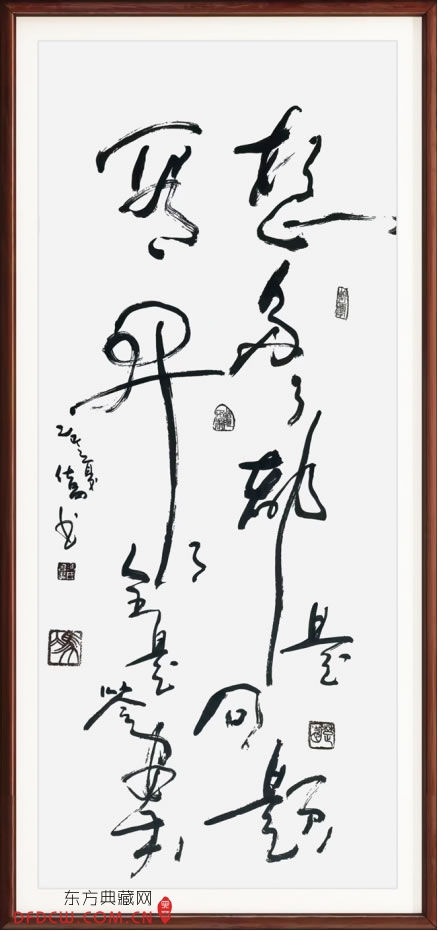 想多了都是问题
看开了全是答案
书
东方典藏网
DFDCW.COM.CN